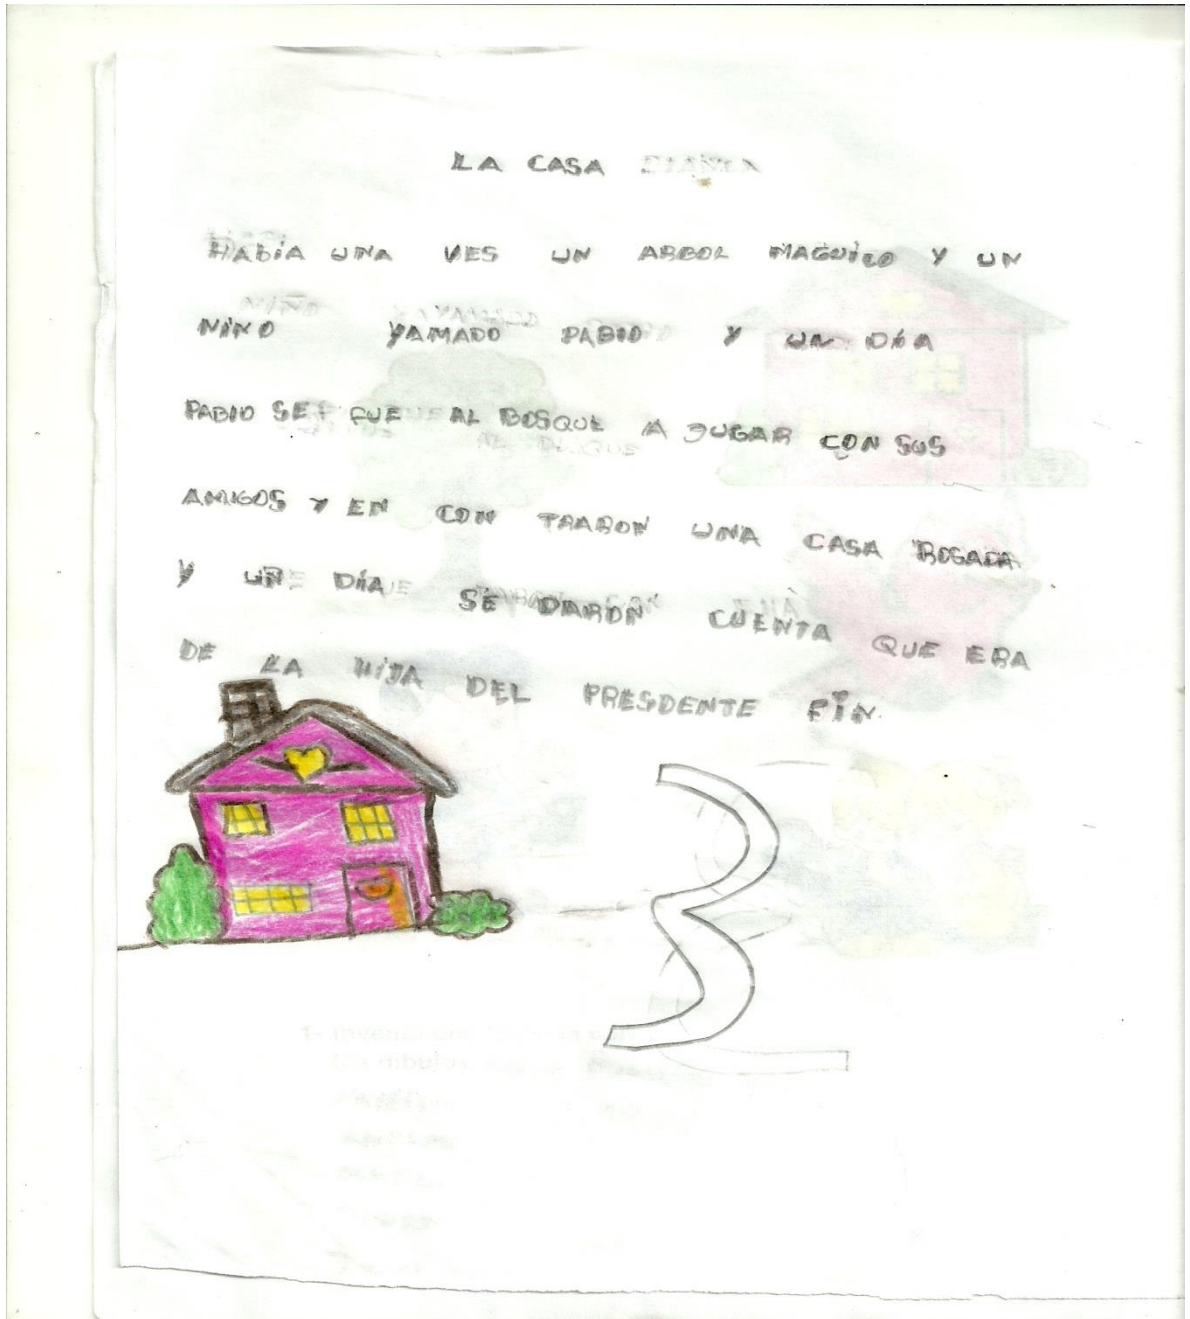 LA CASA
HABÍA UNA VES UN ARBOL MAGUICO Y UN
NIÑO YAMADO PABIO Y UN DÍA
PABIO SE FUE AL BOSQUE A JUGAR CON SUS
AMIGOS Y EN CON TRARON UNA CASA ROSADA
Y UN DÍA SE DARON CUENTA QUE ERA
DE LA HIJA DEL PRESDENTE FIN.